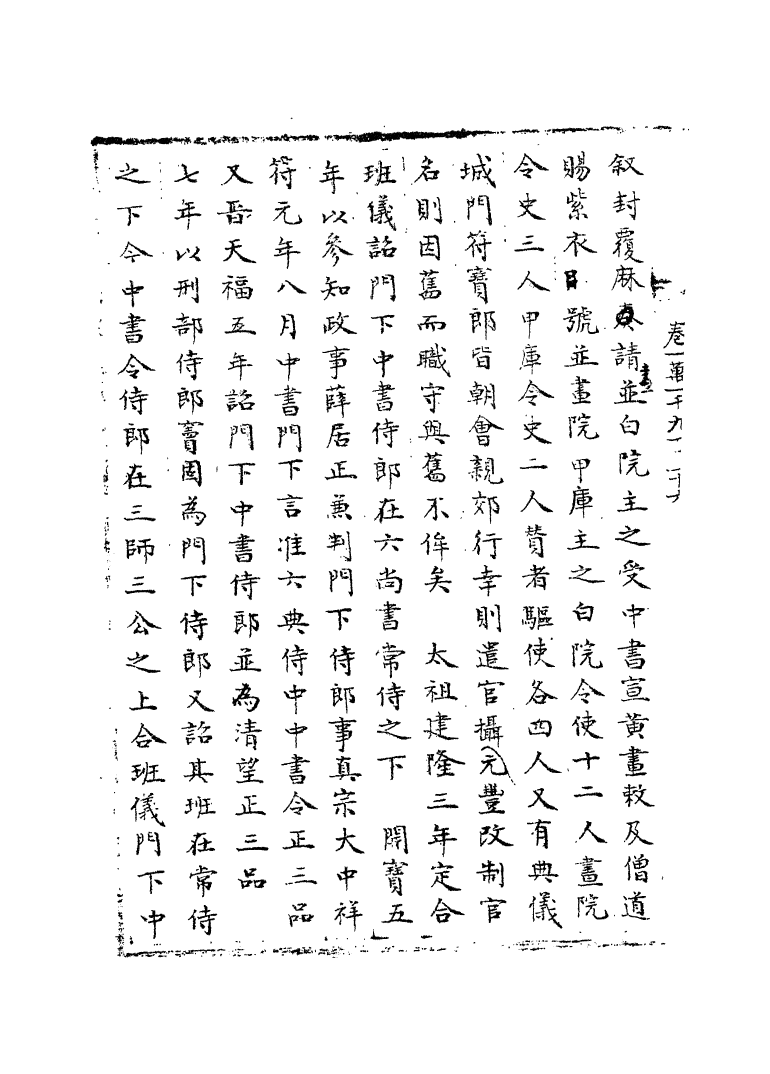 卷一萬一千九
叙封覆麻奏請並白院主之受中書宣黃畫敕及僧道
畫
賜紫衣 號並畫院甲庫主之白院令使十二人畫院
令史三人甲庫令史二人贊者驅使各四人又有典儀
城門符寶郎皆朝會親郊行幸則遣官攝元豐改制官
名則因舊而職守與舊不侔矣 太祖建隆三年定合
班儀詔門下中書侍郎在六尚書常侍之下 開寶五
年以參知政事薛居正兼判門下侍郎事真宗大中祥
符元年八月中書門下言准六典侍中中書令正三品
又晉天福五年詔門下中書侍郎並為清望正三品
七年以刑部侍郎竇固為門下侍郎又詔其班在常侍
之下令中書令侍郎在三師三公之上合班儀門下中